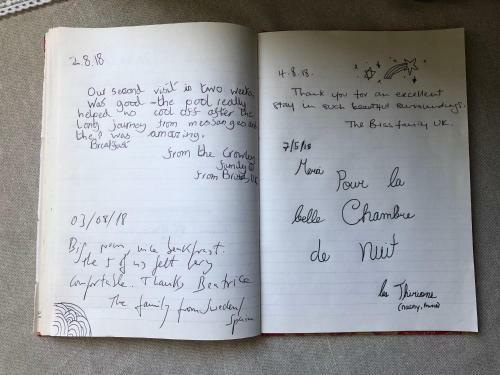 2.8.18
Our second visit in two weeks
was good - the pool really
helped no cool off after the
long journey from messanges and
the was amazing.
Breakfast
from the Crowley
family
from Bristol, UK
03/08/18
Big room, nice breakfast.
The 5 of us felt very
comfortable. Thanks Beatrice
The family from Sweden/
Spain
4.8.18.
Thank you for an excellent
stay in such beautiful surroundings.
The Biss family UK.
7/5/18
Merci
Pour la
belle Chambre
de Nuit
les